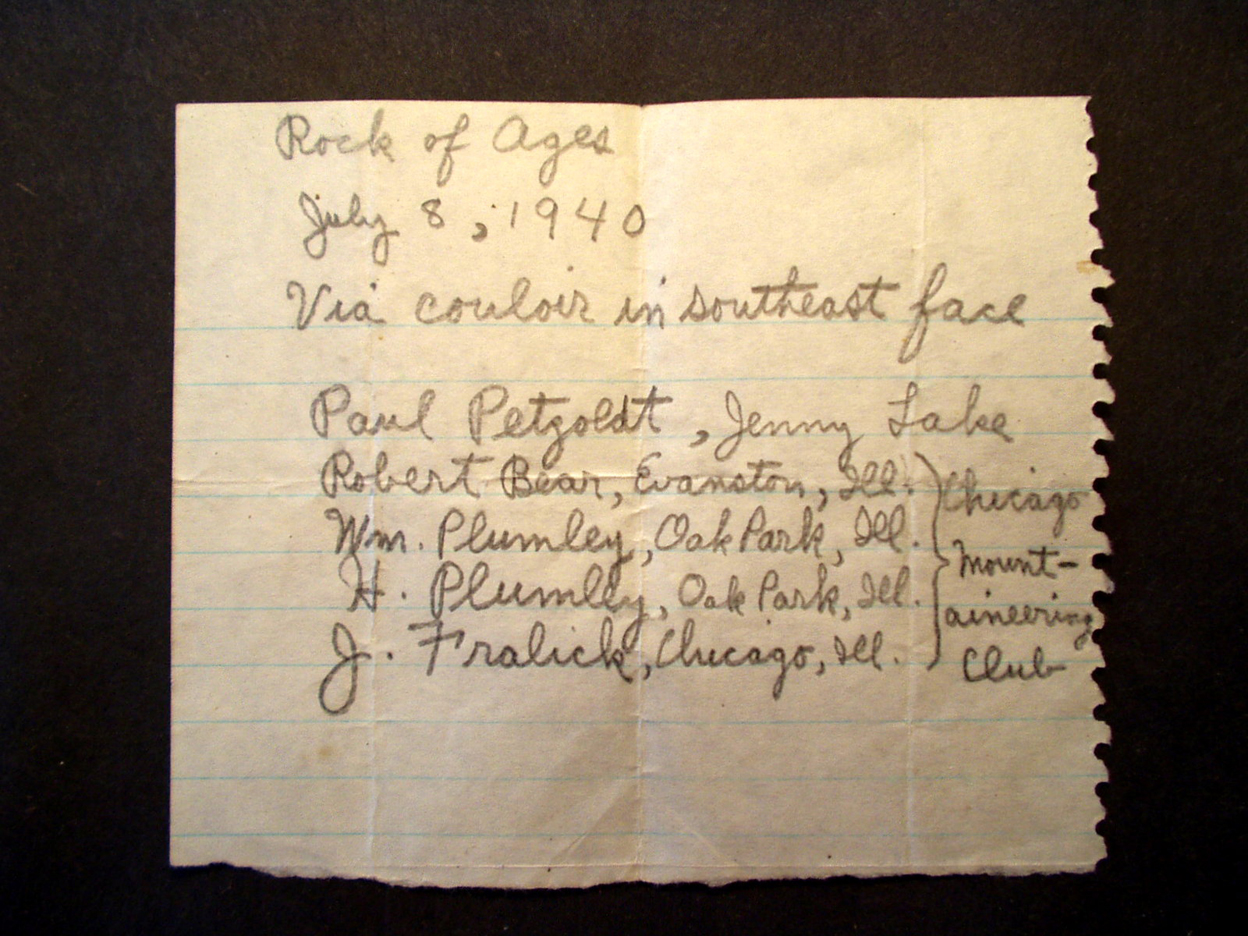 Rock of Ages
July 8, 1940
Via couloir in southeast face
Paul Petzoldt, Jenny Lake
Robert Bear, Evanston, Ill.
Wm. Plumley, Oak Park, Ill.
H. Plumley, Oak Park, Ill.
J. Fralick, Chicago, Ill.
Chicago
Mount-
aineering
Club